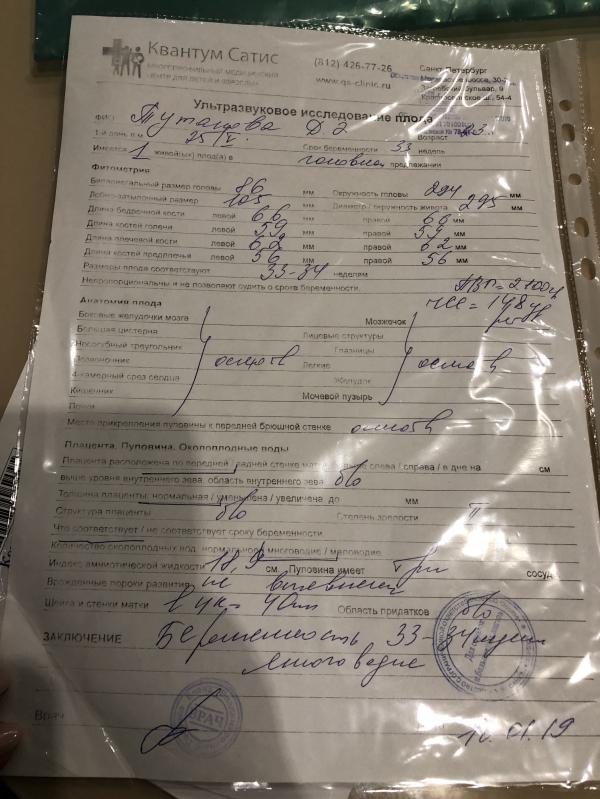 Квантум Сатис
многопрофильный медицинский
центр для детей и взрослых
(812) 426-77-26
www.qs-clinic.ru
Санкт-Петербург
Ультразвуковое исследование плода
ФИО
1-й день п.м. 25/V. Срок беременности 33 недель
Возраст
Имеется 1 живой(ых) плод(а) в головном предлежании
Фетометрия
Бипариетальный размер головы 86 мм Окружность головы 294 мм
Лобно-затылочный размер 105 мм Диаметр / окружность живота 295 мм
Длина бедренной кости левой 66 мм правой 66 мм
Длина костей голени левой 59 мм правой 59 мм
Длина плечевой кости левой 62 мм правой 62 мм
Длина костей предплечья левой 56 мм правой 56 мм
Размеры плода соответствуют 33-34 неделям
Непропорциональны и не позволяют судить о сроке беременности.
ПВП=2100гр
ЧСС=148уд
Анатомия плода
Боковые желудочки мозга Мозжечок
Большая цистерна Лицевые структуры
Носогубный треугольник Глазницы
Позвоночник Легкие
4-камерный срез сердца Желудок
Кишечник Мочевой пузырь
Почки
Место прикрепления пуповины к передней брюшной стенке
Плацента. Пуповина. Околоплодные воды
Плацента расположена по передней / задней стенке матки слева / справа / в дне на см
выше уровня внутреннего зева, область внутреннего зева б/о
Толщина плаценты: нормальная / уменьшена / увеличена до мм
Структура плаценты б/о Степень зрелости II
Что соответствует / не соответствует сроку беременности
Количество околоплодных вод: нормальное / многоводие / маловодие
Индекс амниотической жидкости 18,9 см. Пуповина имеет три сосуд
Врожденные пороки развития не выявлены
Шейка и стенки матки Область придатков б/о
ЗАКЛЮЧЕНИЕ Беременность 33-34 недели
многоводие
Врач
ВРАЧ
01.19